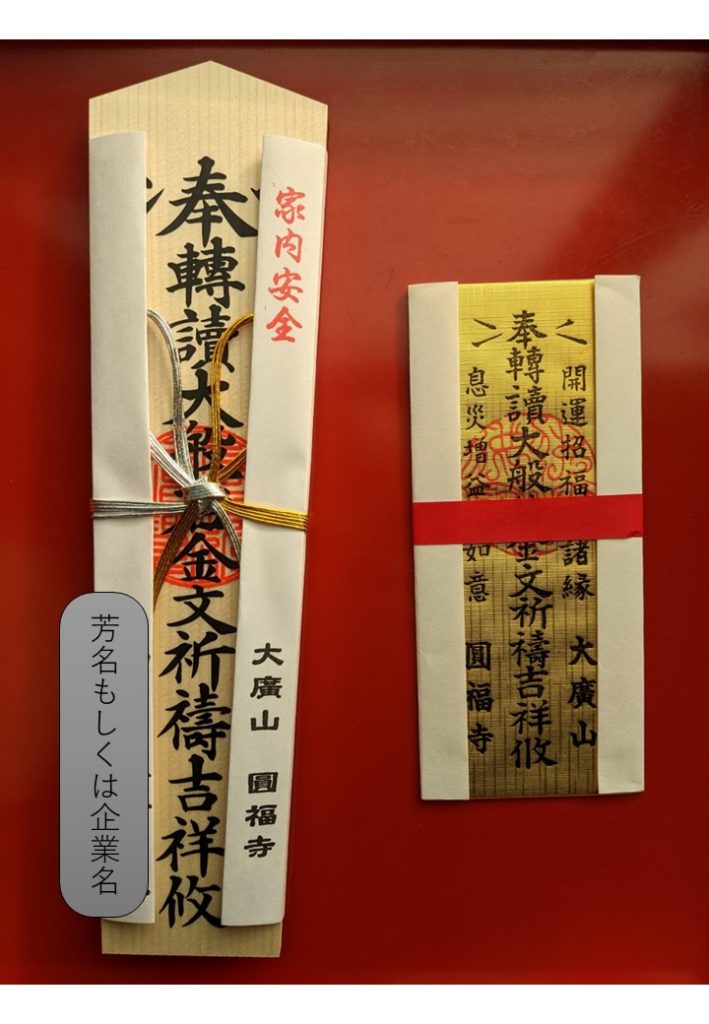 家内安全
大廣山 圓福寺
奉轉讀大般金文祈禱吉祥攸
芳名もしくは企業名
開運招福諸縁 大廣山
奉轉讀大般金文祈禱吉祥攸
息災増益如意 圓福寺